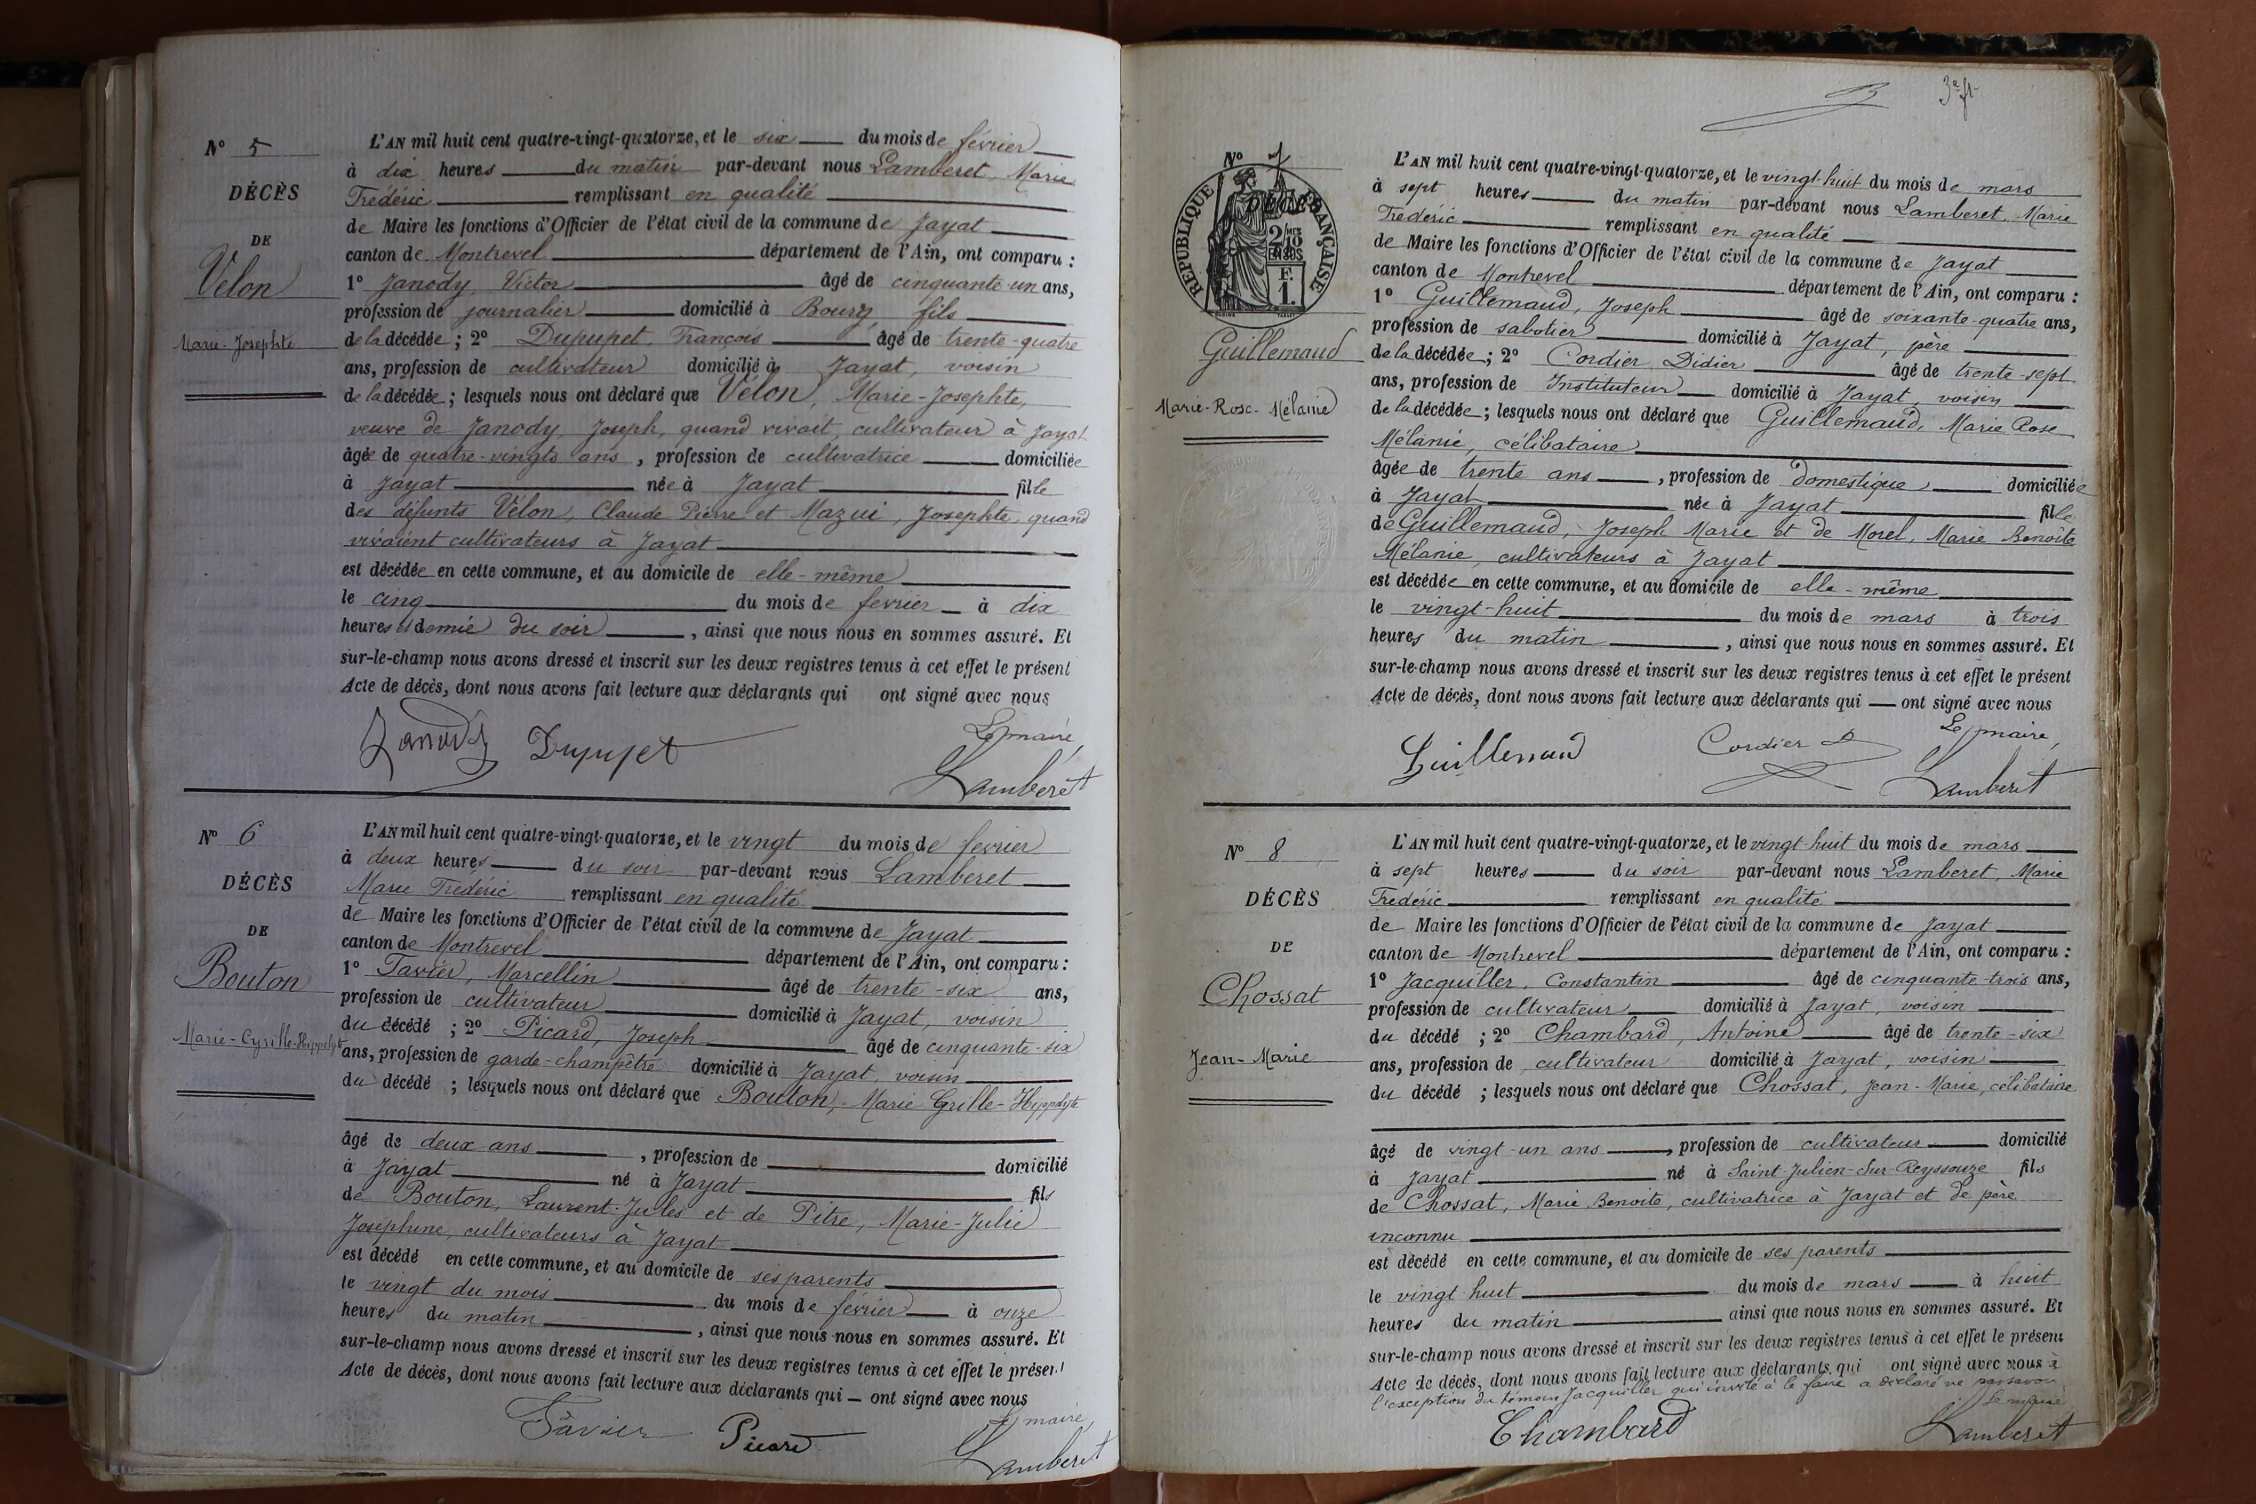 Nº 5
DÉCÈS
DE
Vélon
Marie-Josephte
L'AN mil huit cent quatre-vingt-quatorze, et le six du mois de février
à dix heures du matin par-devant nous Lamberet Marie
Frédéric remplissant en qualité
de Maire les fonctions d'Officier de l'état civil de la commune de Jayat
canton de Montrevel département de l'Ain, ont comparu :
1º Janody, Victor âgé de cinquante-un ans,
profession de journalier domicilié à Bourg, fils
de la décédée ; 2º Dupupet, François âgé de trente-quatre
ans, profession de cultivateur domicilié à Jayat, voisin
de la décédée ; lesquels nous ont déclaré que Vélon, Marie-Josephte,
veuve de Janody, Joseph, quand vivait, cultivateur à Jayat
âgée de quatre-vingts ans, profession de cultivatrice domiciliée
à Jayat née à Jayat fille
des défunts Vélon, Claude Pierre et Mazui, Josephte, quand
vivaient cultivateurs à Jayat
est décédée en cette commune, et au domicile de elle-même
le cinq du mois de février à dix
heures et demie du soir, ainsi que nous nous en sommes assuré. Et
sur-le-champ nous avons dressé et inscrit sur les deux registres tenus à cet effet le présent
Acte de décès, dont nous avons fait lecture aux déclarants qui ont signé avec nous
Le maire,
Janody Dupupet Lamberet
Nº 6
DÉCÈS
DE
Bouton
Marie-Cyrille-Hippolyte
L'AN mil huit cent quatre-vingt-quatorze, et le vingt du mois de février
à deux heures du soir par-devant nous Lamberet
Marie Frédéric remplissant en qualité
de Maire les fonctions d'Officier de l'état civil de la commune de Jayat
canton de Montrevel département de l'Ain, ont comparu :
1º Favier, Marcellin âgé de trente-six ans,
profession de cultivateur domicilié à Jayat, voisin
du décédé ; 2º Picard, Joseph âgé de cinquante-six
ans, profession de garde-champêtre domicilié à Jayat, voisin
du décédé ; lesquels nous ont déclaré que Bouton, Marie Cyrille-Hippolyte
âgé de deux ans, profession de domicilié
à Jayat né à Jayat fils
de Bouton, Laurent-Jules et de Pitre, Marie-Julie
Josephine, cultivateurs à Jayat
est décédé en cette commune, et au domicile de ses parents
le vingt du mois du mois de février à onze
heures du matin, ainsi que nous nous en sommes assuré. Et
sur-le-champ nous avons dressé et inscrit sur les deux registres tenus à cet effet le présent
Acte de décès, dont nous avons fait lecture aux déclarants qui ont signé avec nous
Le maire,
Favier Picard Lamberet
3e ft
Nº 7
DÉCÈS
RÉPUBLIQUE FRANÇAISE
2/10
F.
1.
Guillemaud
Marie-Rose-Mélanie
L'AN mil huit cent quatre-vingt-quatorze, et le vingt-huit du mois de mars
à sept heures du matin par-devant nous Lamberet, Marie
Frédéric remplissant en qualité
de Maire les fonctions d'Officier de l'état civil de la commune de Jayat
canton de Montrevel département de l'Ain, ont comparu :
1º Guillemaud, Joseph âgé de soixante-quatre ans,
profession de sabotier domicilié à Jayat, père
de la décédée ; 2º Cordier Didier âgé de trente-sept
ans, profession de Instituteur domicilié à Jayat, voisin
de la décédée ; lesquels nous ont déclaré que Guillemaud, Marie Rose
Mélanie, célibataire
âgée de trente ans, profession de domestique domiciliée
à Jayat née à Jayat fille
de Guillemaud, Joseph Marie et de Morel, Marie Benoîte
Mélanie, cultivateurs à Jayat
est décédée en cette commune, et au domicile de elle-même
le vingt-huit du mois de mars à trois
heures du matin, ainsi que nous nous en sommes assuré. Et
sur-le-champ nous avons dressé et inscrit sur les deux registres tenus à cet effet le présent
Acte de décès, dont nous avons fait lecture aux déclarants qui ont signé avec nous
Le maire,
Guillemaud Cordier D Lamberet
Nº 8
DÉCÈS
DE
Chossat
Jean-Marie
L'AN mil huit cent quatre-vingt-quatorze, et le vingt-huit du mois de mars
à sept heures du soir par-devant nous Lamberet, Marie
Frédéric remplissant en qualité
de Maire les fonctions d'Officier de l'état civil de la commune de Jayat
canton de Montrevel département de l'Ain, ont comparu :
1º Jacquiller, Constantin âgé de cinquante-trois ans,
profession de cultivateur domicilié à Jayat, voisin
du décédé ; 2º Chambard, Antoine âgé de trente-six
ans, profession de cultivateur domicilié à Jayat, voisin
du décédé ; lesquels nous ont déclaré que Chossat, Jean-Marie, célibataire
âgé de vingt-un ans, profession de cultivateur domicilié
à Jayat né à Saint-Julien-sur-Reyssouze fils
de Chossat, Marie Benoite, cultivatrice à Jayat et de père
inconnu
est décédé en cette commune, et au domicile de ses parents
le vingt huit du mois de mars à huit
heures du matin ainsi que nous nous en sommes assuré. Et
sur-le-champ nous avons dressé et inscrit sur les deux registres tenus à cet effet le présent
Acte de décès, dont nous avons fait lecture aux déclarants qui ont signé avec nous à
l'exception du témoin Jacquiller qui invité à le faire a déclaré ne pas savoir
Le maire
Chambard Lamberet